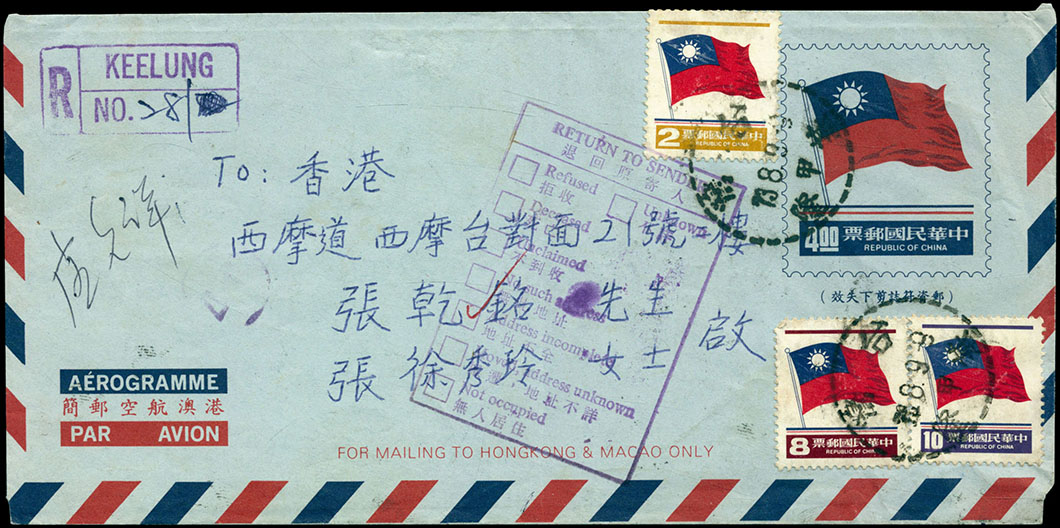 R
KEELUNG
NO. 28/
2
票郵國民華中
REPUBLIC OF CHINA
4.00
票郵國民華中
REPUBLIC OF CHINA
(效失下剪誌符資郵)
RETURN TO SENDER
退回原寄人
Refused
拒收
Unknown
Deceased
Unclaimed
不到收
No such address
地址
Address incomplete
地址不全
address unknown
地址不詳
Not occupied
無人居住
To: 香港
西摩道 西摩台對面 21號 樓
張乾銘 先生
張徐秀玲 女士 啟
AÉROGRAMME
簡郵空航澳港
PAR AVION
FOR MAILING TO HONGKONG & MACAO ONLY
8
票郵國民華中
REPUBLIC OF CHINA
10
票郵國民華中
REPUBLIC OF CHINA